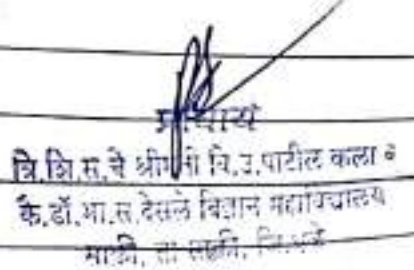 प्राचार्य
वि.शि.स.चे श्रीमती वि.उ.पाटील कला व
कै.डॉ.भा.स.देसले विज्ञान महाविद्यालय
साक्री, ता साक्री, जि.धुळे